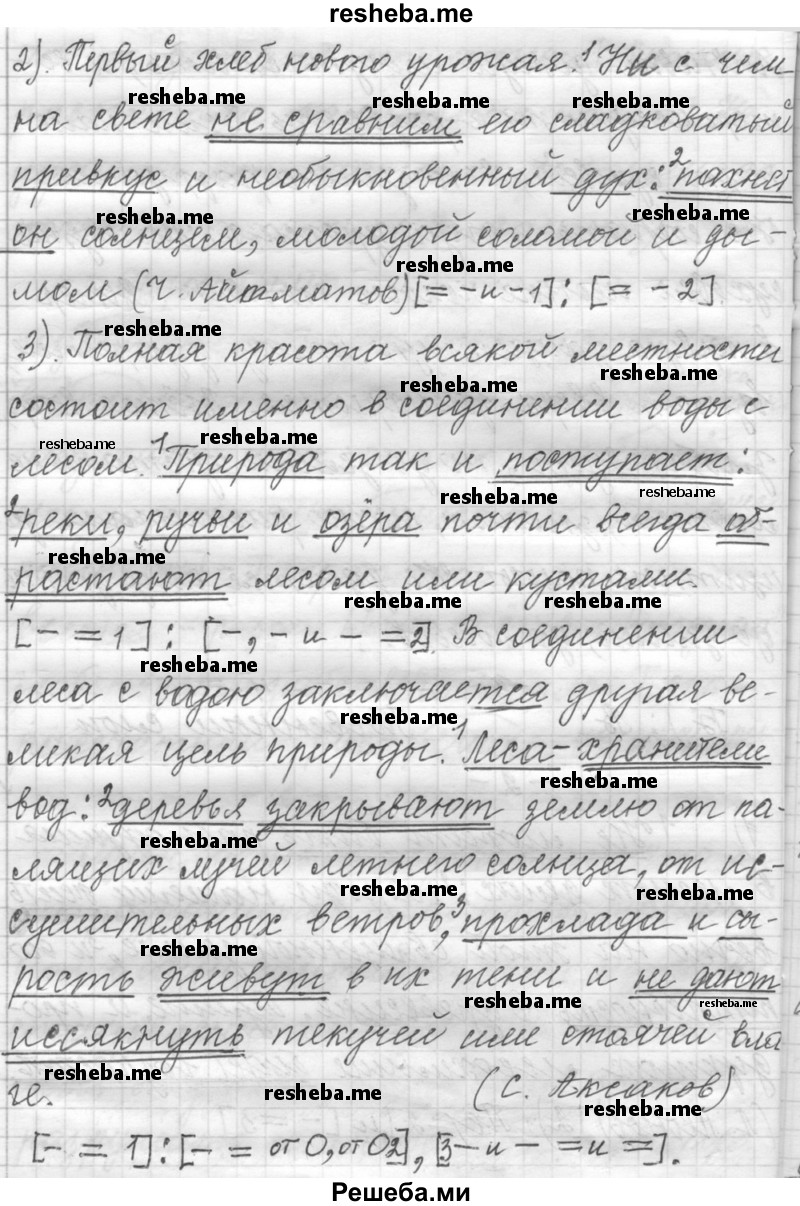 resheba.me
2). Первый хлеб нового урожая. ¹Ни с чем
resheba.me resheba.me resheba.me
на свете не сравним его сладковатый
привкус и необыкновенный дух: ²пахнет
resheba.me resheba.me
он солнцем, молодой соломой и ды-
resheba.me
мом (Ч. Айтматов) [= - и - 1]: [= - 2].
resheba.me
3). Полная красота всякой местности
resheba.me resheba.me
состоит именно в соединении воды с
resheba.me resheba.me
лесом. ¹Природа так и поступает:
resheba.me resheba.me
²реки, ручьи и озёра почти всегда об-
resheba.me
растают лесом или кустами.
resheba.me resheba.me
[- = 1]: [-, - и - = 2]. В соединении
resheba.me
леса с водою заключается другая ве-
resheba.me
ликая цель природы. ¹Леса - хранители
resheba.me
вод: ²деревья закрывают землю от па-
resheba.me
лящих лучей летнего солнца, от ис-
resheba.me resheba.me
сушительных ветров, ³прохлада и сы-
resheba.me
рость живут в их тени и не дают
resheba.me resheba.me
иссякнуть текучей или стоячей вла
resheba.me resheba.me
ге. (С. Аксаков)
resheba.me
[- = 1]: [- = от О, от О 2], [3 - и - = и =].
Решеба.ми